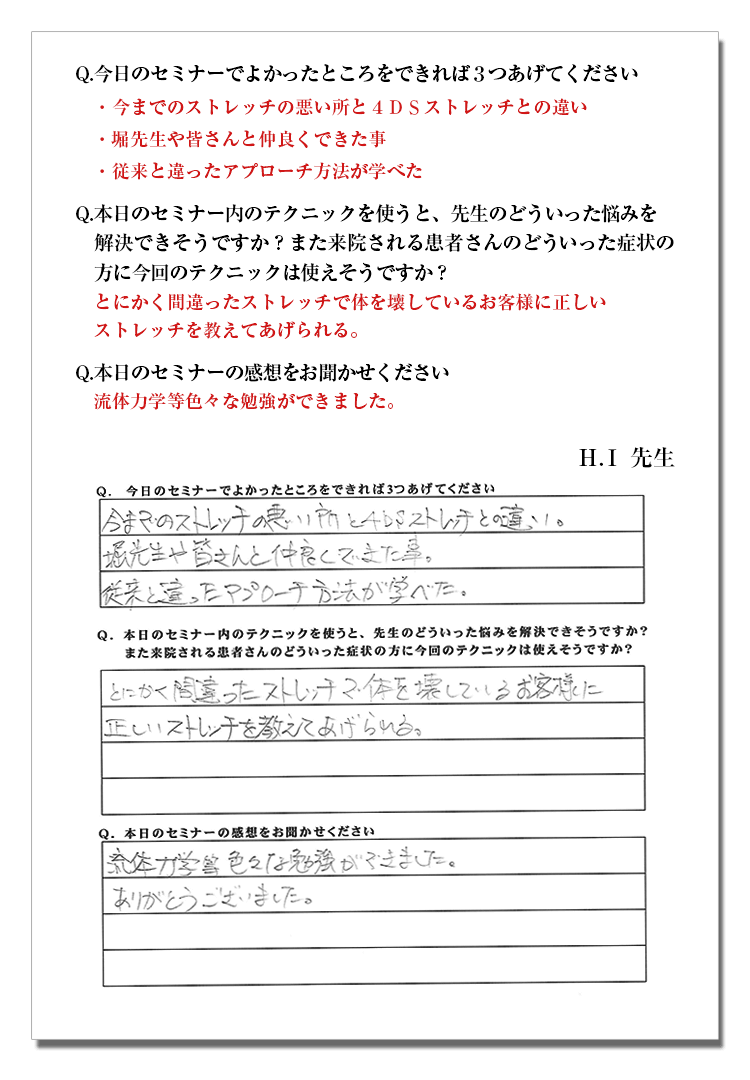 Q.今日のセミナーでよかったところをできれば３つあげてください
・今までのストレッチの悪い所と４ＤＳストレッチとの違い
・堀先生や皆さんと仲良くできた事
・従来と違ったアプローチ方法が学べた
Q.本日のセミナー内のテクニックを使うと、先生のどういった悩みを
解決できそうですか？また来院される患者さんのどういった症状の
方に今回のテクニックは使えそうですか？
とにかく間違ったストレッチで体を壊しているお客様に正しい
ストレッチを教えてあげられる。
Q.本日のセミナーの感想をお聞かせください
流体力学等色々な勉強ができました。
H.I 先生
Q. 今日のセミナーでよかったところをできれば3つあげてください
今までのストレッチの悪い所と4DSストレッチとの違い。
堀先生や皆さんと仲良くできた事。
従来と違ったアプローチ方法が学べた。
Q. 本日のセミナー内のテクニックを使うと、先生のどういった悩みを解決できそうですか?
また来院される患者さんのどういった症状の方に今回のテクニックは使えそうですか?
とにかく間違ったストレッチで体を壊しているお客様に
正しいストレッチを教えてあげられる。
Q. 本日のセミナーの感想をお聞かせください
流体力学等色々な勉強ができました。
ありがとうございました。